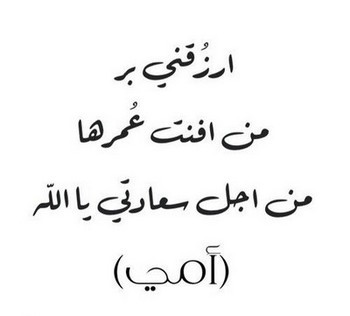 ارزُقني بر
من افنت عُمرها
من اجل سعادتي يا اللّه
(أمي)